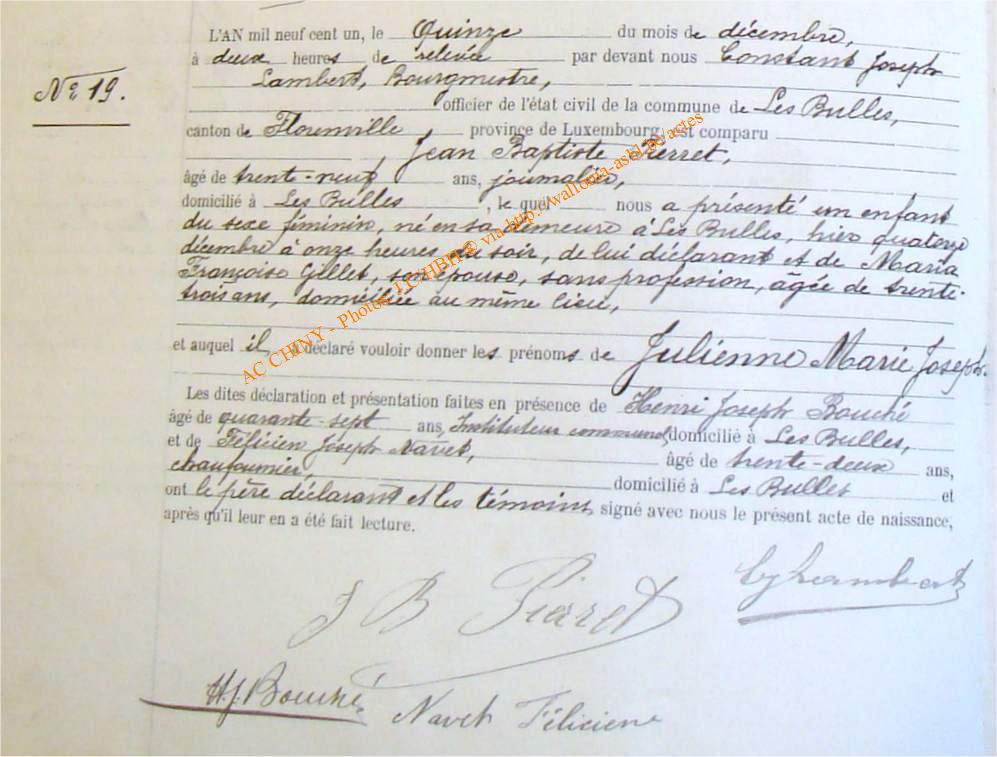 L'AN mil neuf cent un, le Quinze du mois de décembre,
à deux heures de relevée par devant nous Constant Joseph
Lambert, Bourgmestre,
Nº 19.
officier de l'état civil de la commune de Les Bulles,
canton de Florenville, province de Luxembourg, est comparu
, Jean Baptiste Pierret,
âgé de trente-neuf ans, journalier,
domicilié à Les Bulles, le quel nous a présenté un enfant
du sexe féminin, né en sa demeure à Les Bulles, hier quatorze
décembre à onze heures du soir, de lui déclarant et de Maria
Françoise Gillet, son épouse, sans profession, âgée de trente-
trois ans, domiciliée au même lieu,
et auquel il a déclaré vouloir donner les prénoms de Julienne Marie Joseph.
Les dites déclaration et présentation faites en présence de Henri Joseph Bouché
âgé de quarante-sept ans, Instituteur communal, domicilié à Les Bulles,
et de Félicien Joseph Navet, âgé de trente-deux ans,
chaufournier, domicilié à Les Bulles et
ont le père déclarant et les témoins signé avec nous le présent acte de naissance,
après qu'il leur en a été fait lecture.
CJ Lambert
J B Pierret
H.J. Bouché Navet Félicien
AC CHINY - Photos LUXHBH © via http://wallonia-asbl.be/actes